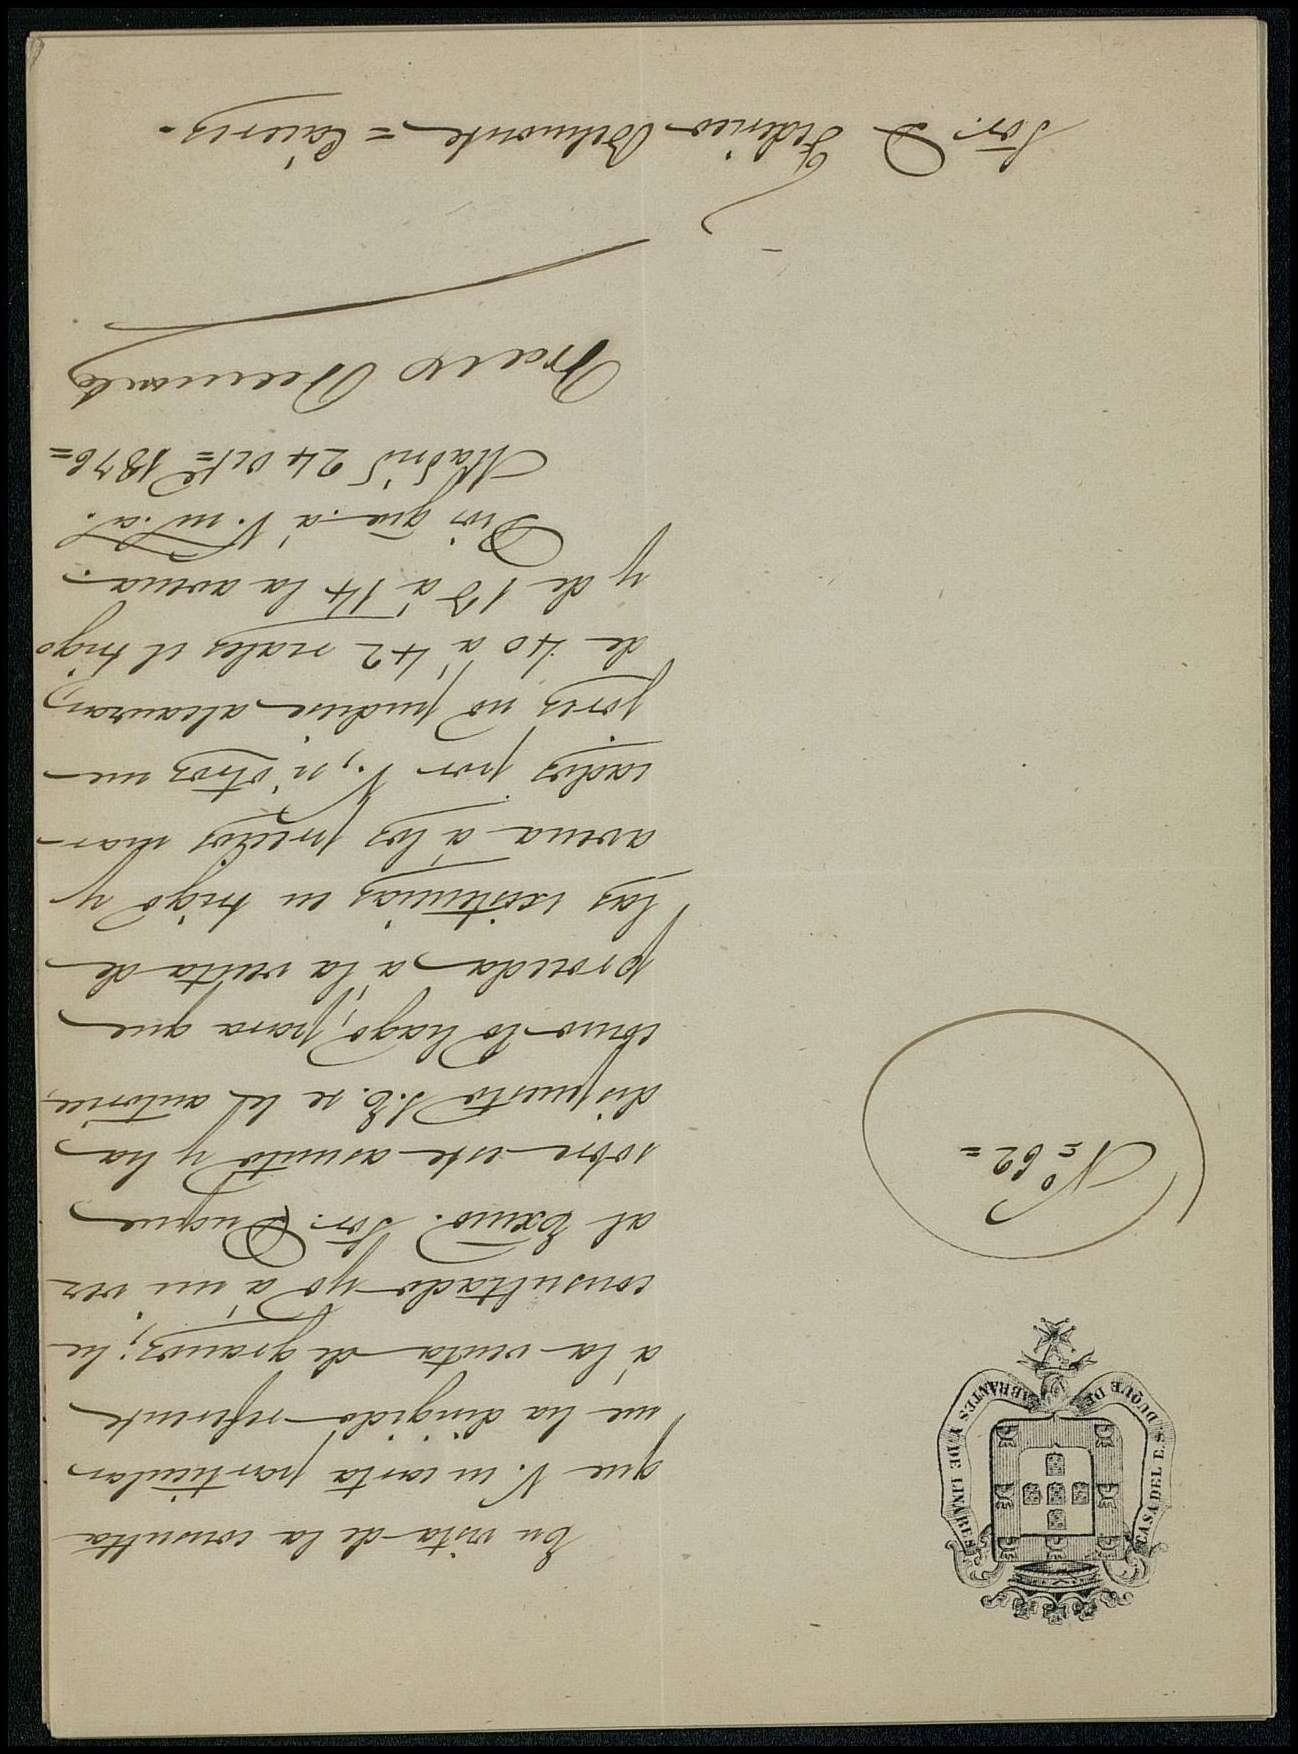 CASA DEL E. S. DUQUE DE ABRANTES Y DE LINARES
Nº 62=
En vista de la consulta
que V. en carta particular
me ha dirigido referente
á la venta de granos; he
consultado yo á mi vez
al Exmo. Sor. Duque
sobre este asunto y ha
dispuesto S. E. se le autorice,
como lo hago, para que
proceda á la venta de
las existencias en trigo y
avena á los precios mar-
cados por V., si otros me-
jores no pudiese alcanzar,
de 40 á 42 reales el trigo
y de 13 á 14 la avena.
Dios gūe á V. m. a.
Madrid 24 Octe 1876=
Sor. D. Federico Belmonte = Cáceres.